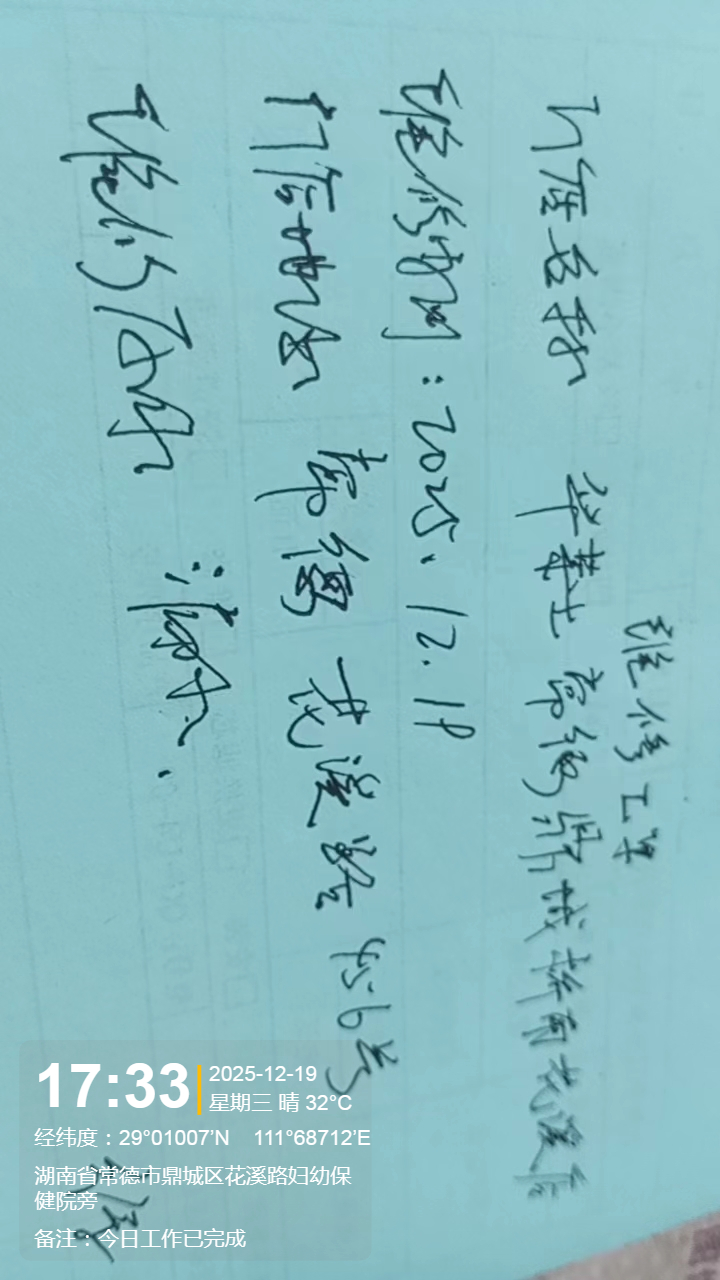 维修工单
门店名称 华莱士常德鼎城桥南花溪店
维修时间：2025.12.19
门店地址 常德花溪路456号
维修
17:33
2025-12-19
星期三 晴 32°C
经纬度：29°01007'N 111°68712'E
湖南省常德市鼎城区花溪路妇幼保
健院旁
备注：今日工作已完成